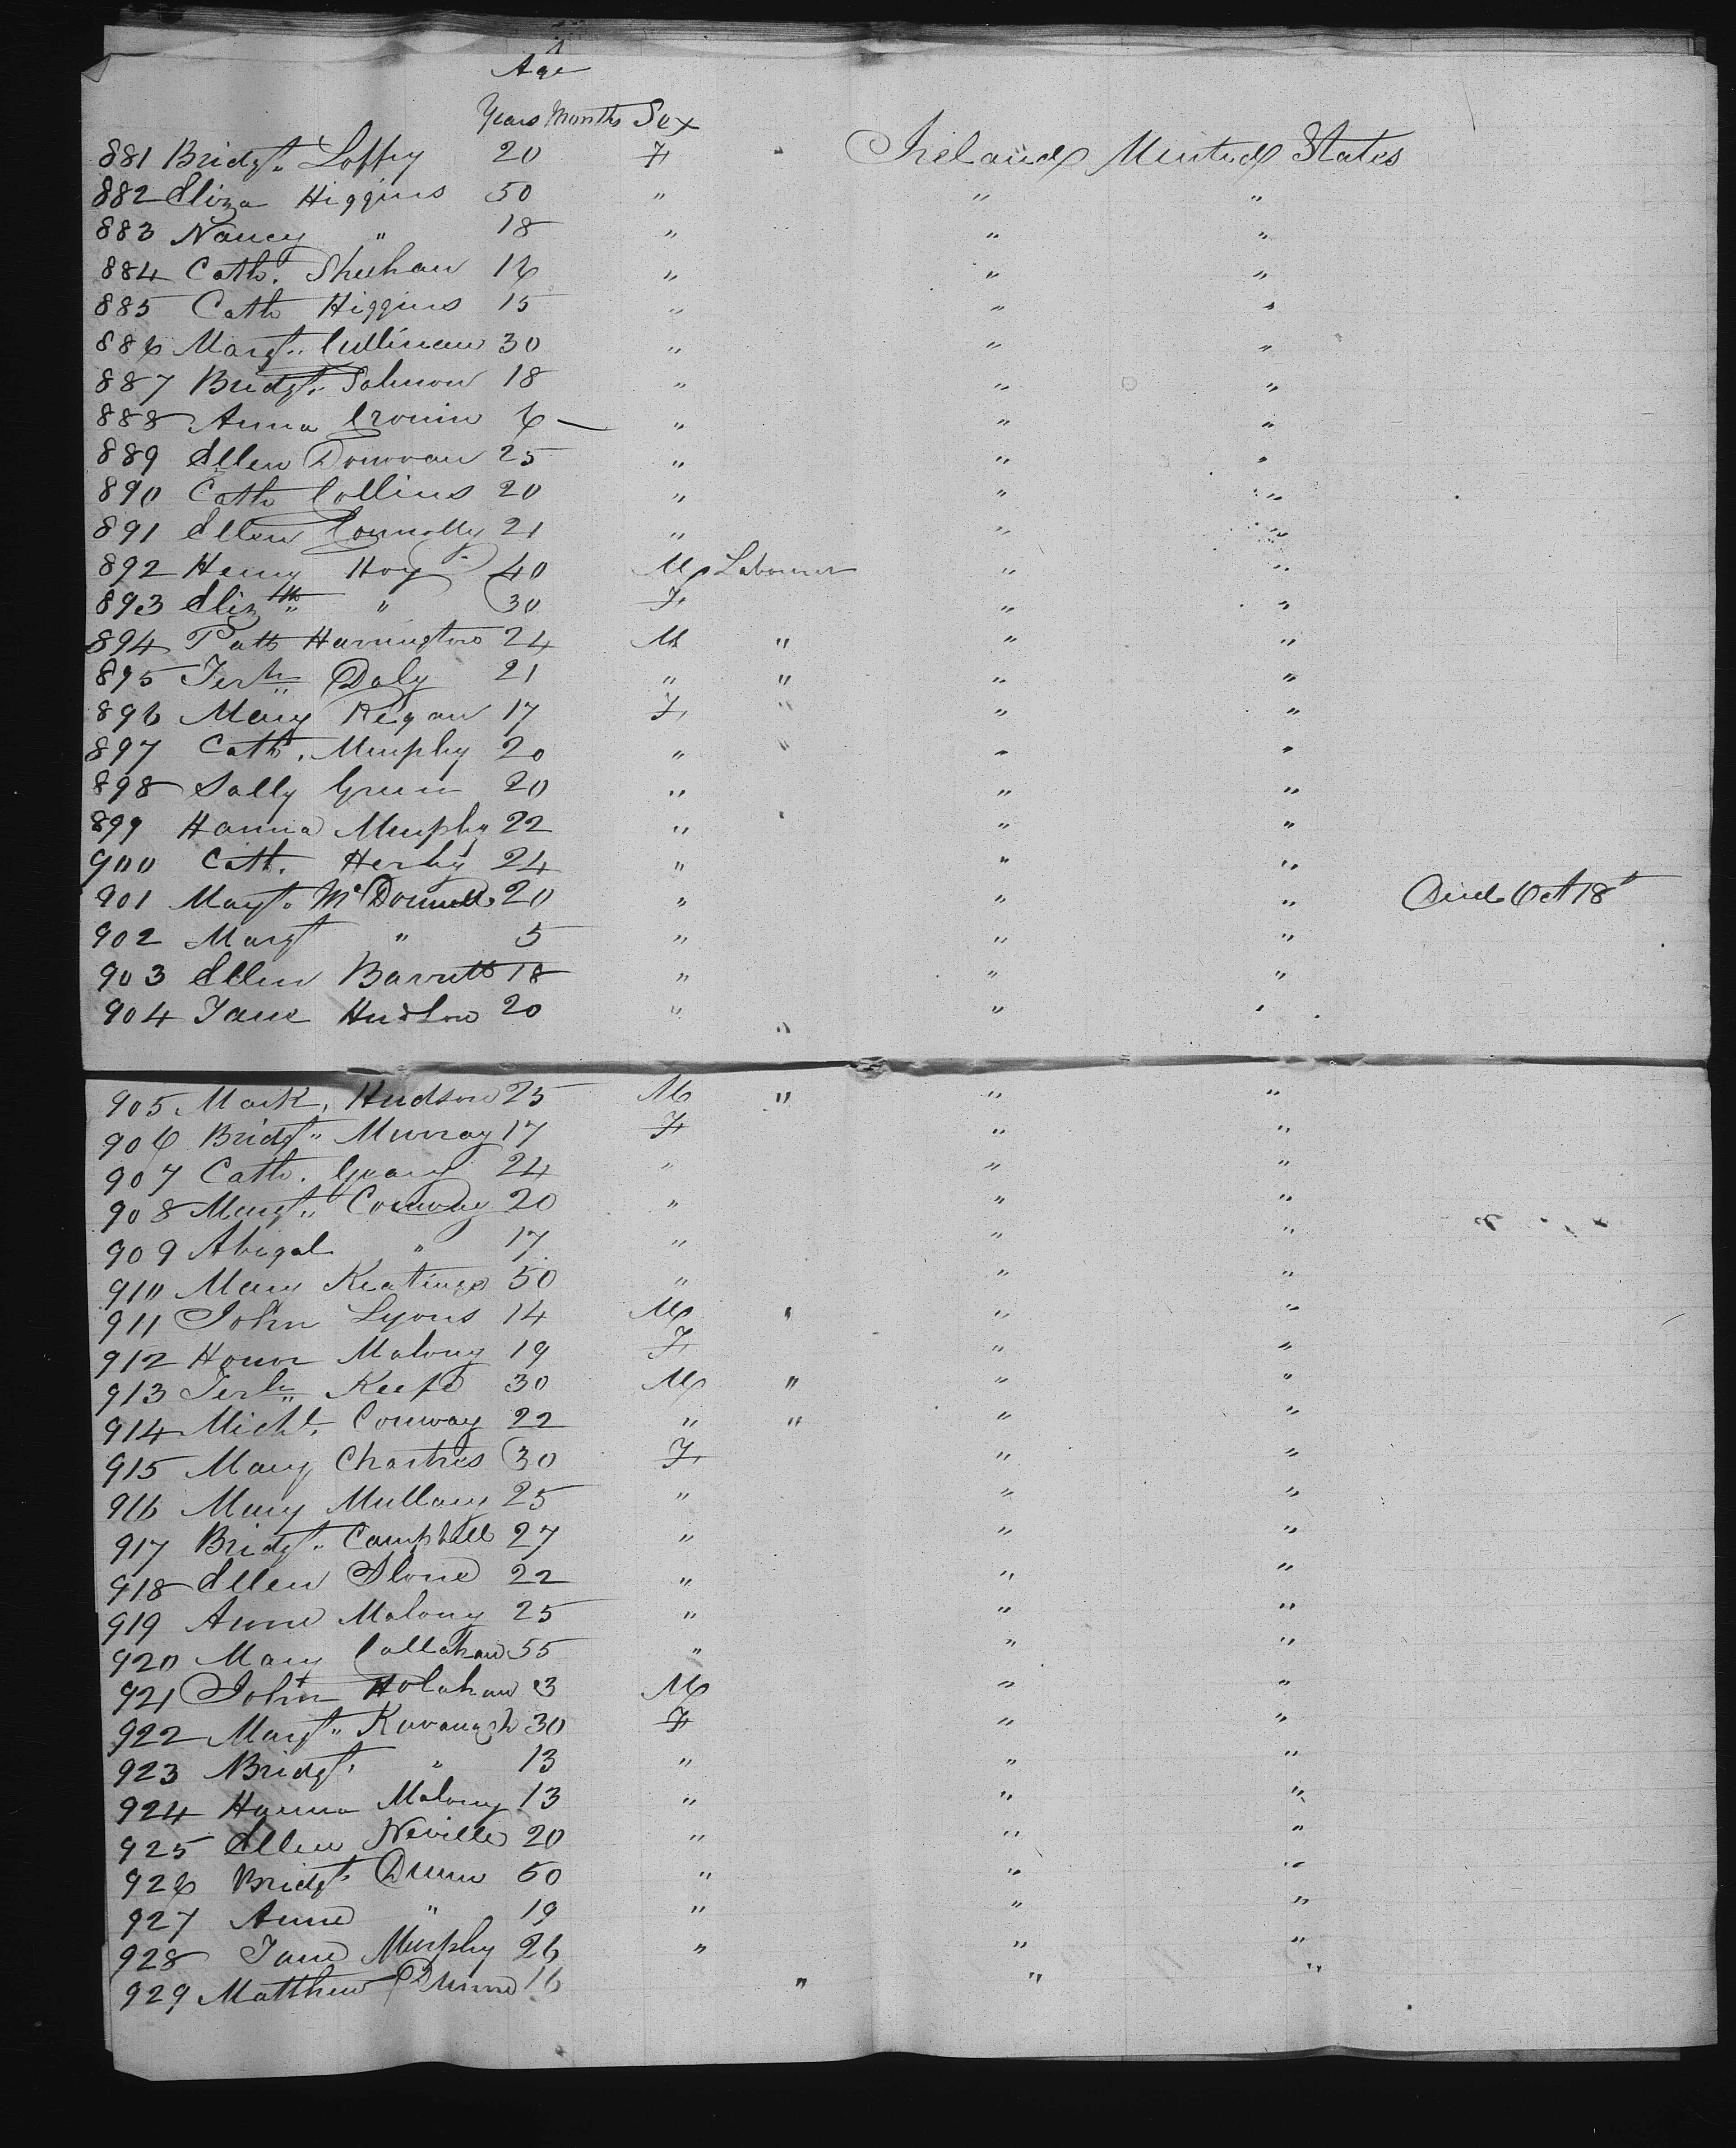 Age
Years Months Sex
881 Bridgt. Loffey 20 F " Ireland United States
882 Eliza Higgins 50 " " "
883 Nancy " 18 " " "
884 Cath. Sheehan 16 " " "
885 Cath Higgins 15 " " "
886 Margt. Cullinan 30 " " "
887 Bridgt. Salmon 18 " " "
888 Anna Cronin 6 — " " "
889 Ellen Donovan 25 " " "
890 Cath Collins 20 " " "
891 Ellen Connolly 21 " " "
892 Henry Hoy 40 M Labourer " "
893 Elizth " 30 F " "
894 Patt Harrington 24 M " " "
895 Jerh Daly 21 " " " "
896 Mary Regan 17 F " " "
897 Cath. Murphy 20 " " " "
898 Sally Green 20 " " "
899 Hanna Murphy 22 " " "
900 Cath. Herby 24 " " "
901 Margt. McDonnell 20 " " " Died Oct 18th
902 Margt " 5 " " "
903 Ellen Barrett 18 " " "
904 Jane Hudson 20 " " " "
905 Mark Hudson 25 M " " "
906 Bridgt. Murray 17 F " "
907 Cath. Geary 24 " " "
908 Margt. Conway 20 " " "
909 Abigal " 17 " " "
910 Mary Keatinge 50 " " "
911 John Lyons 14 M " " "
912 Honor Malony 19 F " "
913 Jerh Keefe 30 M " " "
914 Michl. Conway 22 " " " "
915 Mary Chartres 30 F " "
916 Mary Mullany 25 " " "
917 Bridgt. Campbell 27 " " "
918 Ellen Slone 22 " " "
919 Anne Malony 25 " " "
920 Mary Callahan 55 " " "
921 John Holahan 3 M " "
922 Margt. Kavanagh 30 F " "
923 Bridgt. " 13 " " "
924 Hanna Malony 13 " " "
925 Ellen Neville 20 " " "
926 Bridgt. Dunn 50 " " "
927 Anne " 19 " " "
928 Jane Murphy 26 " " "
929 Matthew Dunne 16 " " "